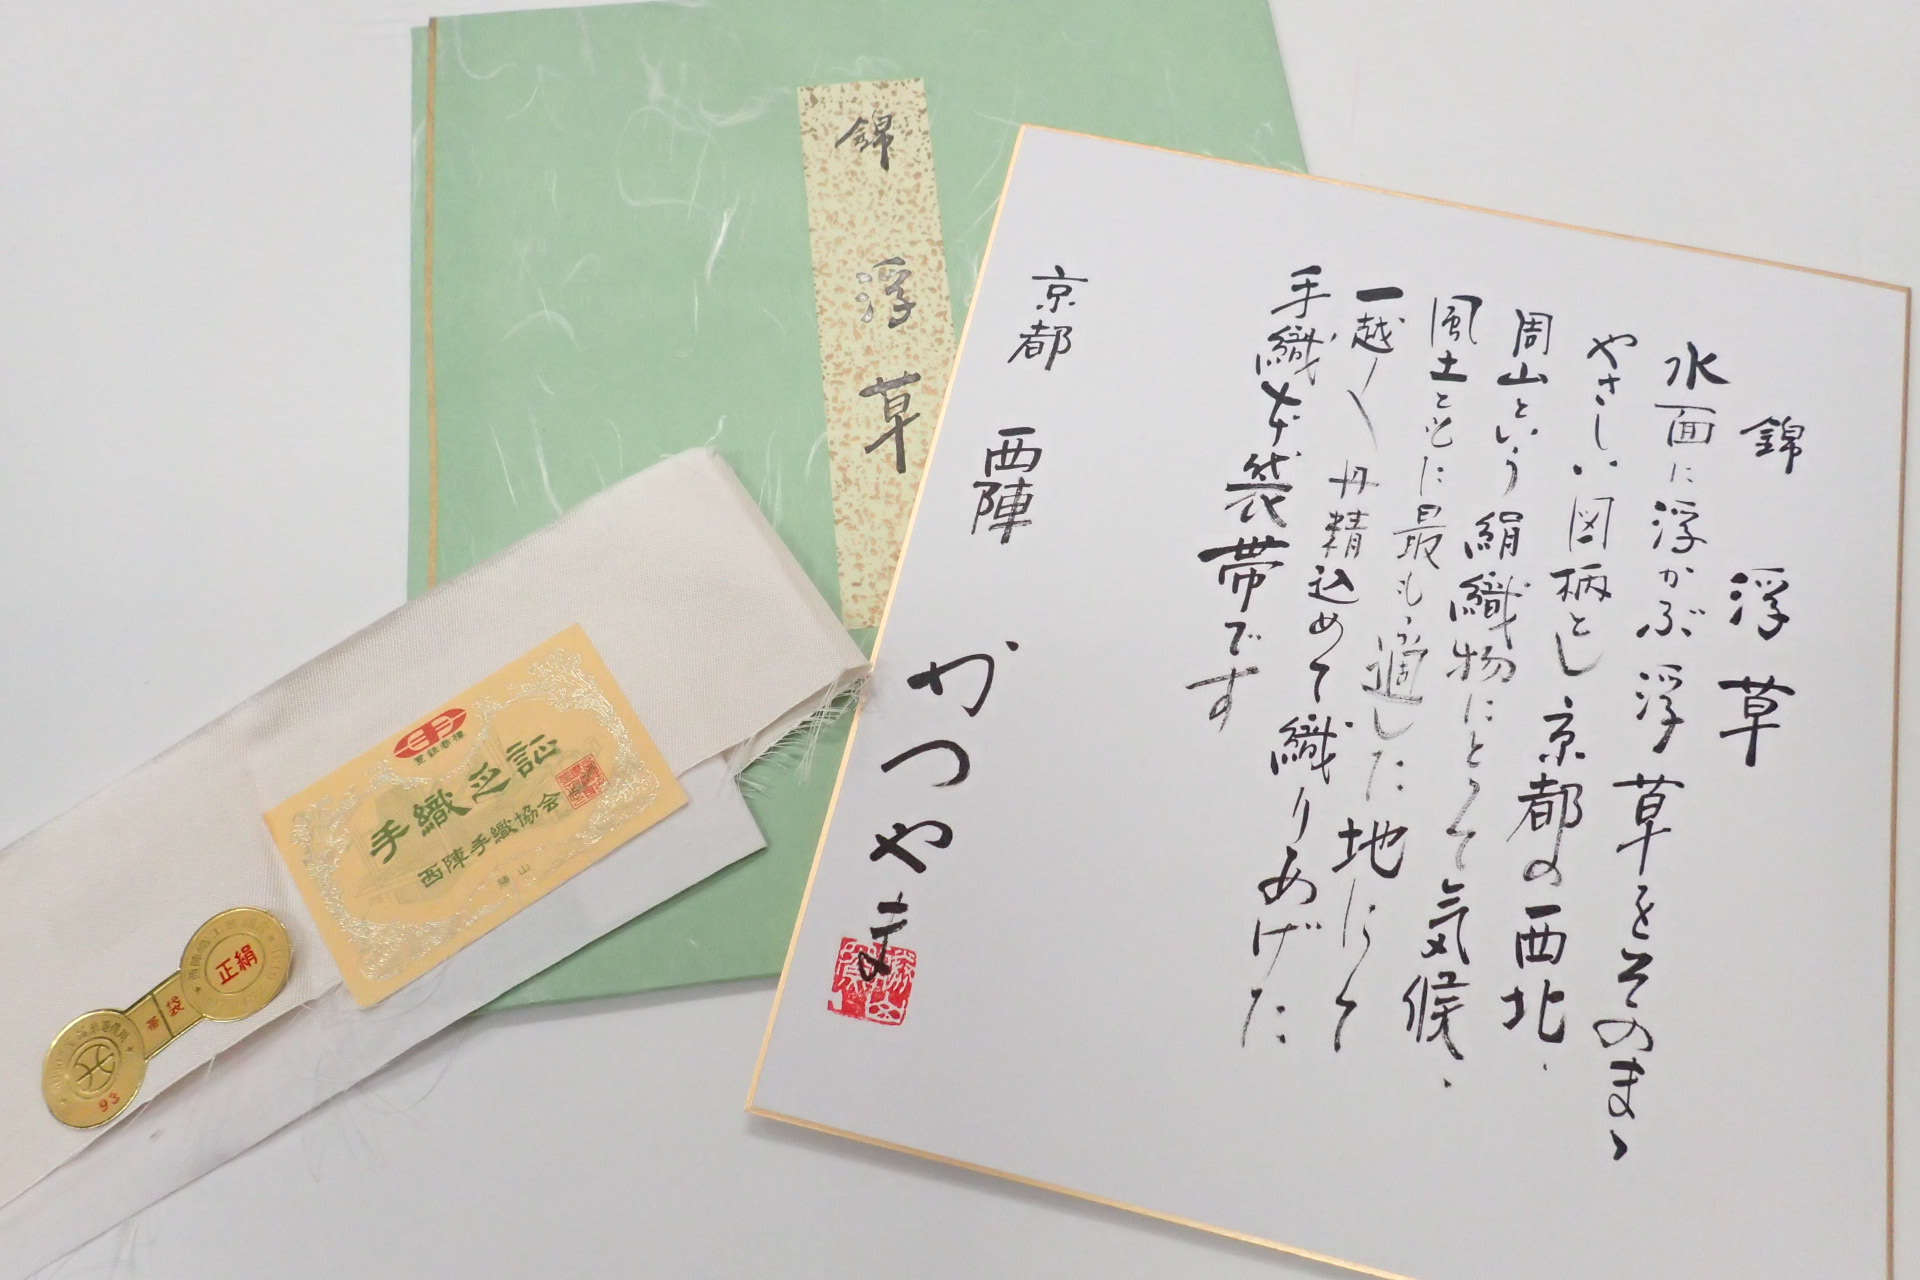 錦 浮草
水面に浮かぶ浮草をそのまゝ
やさしい図柄とし京都の西北、
周山という絹織物にとって気候、
風土ともに最も適した地にて
一越〱丹精込めて織りあげた
手織本袋帯です
京都 西陣 かつやま
錦 浮草
手織之証
西陣手織協会
勝山
正絹
袋帯
93